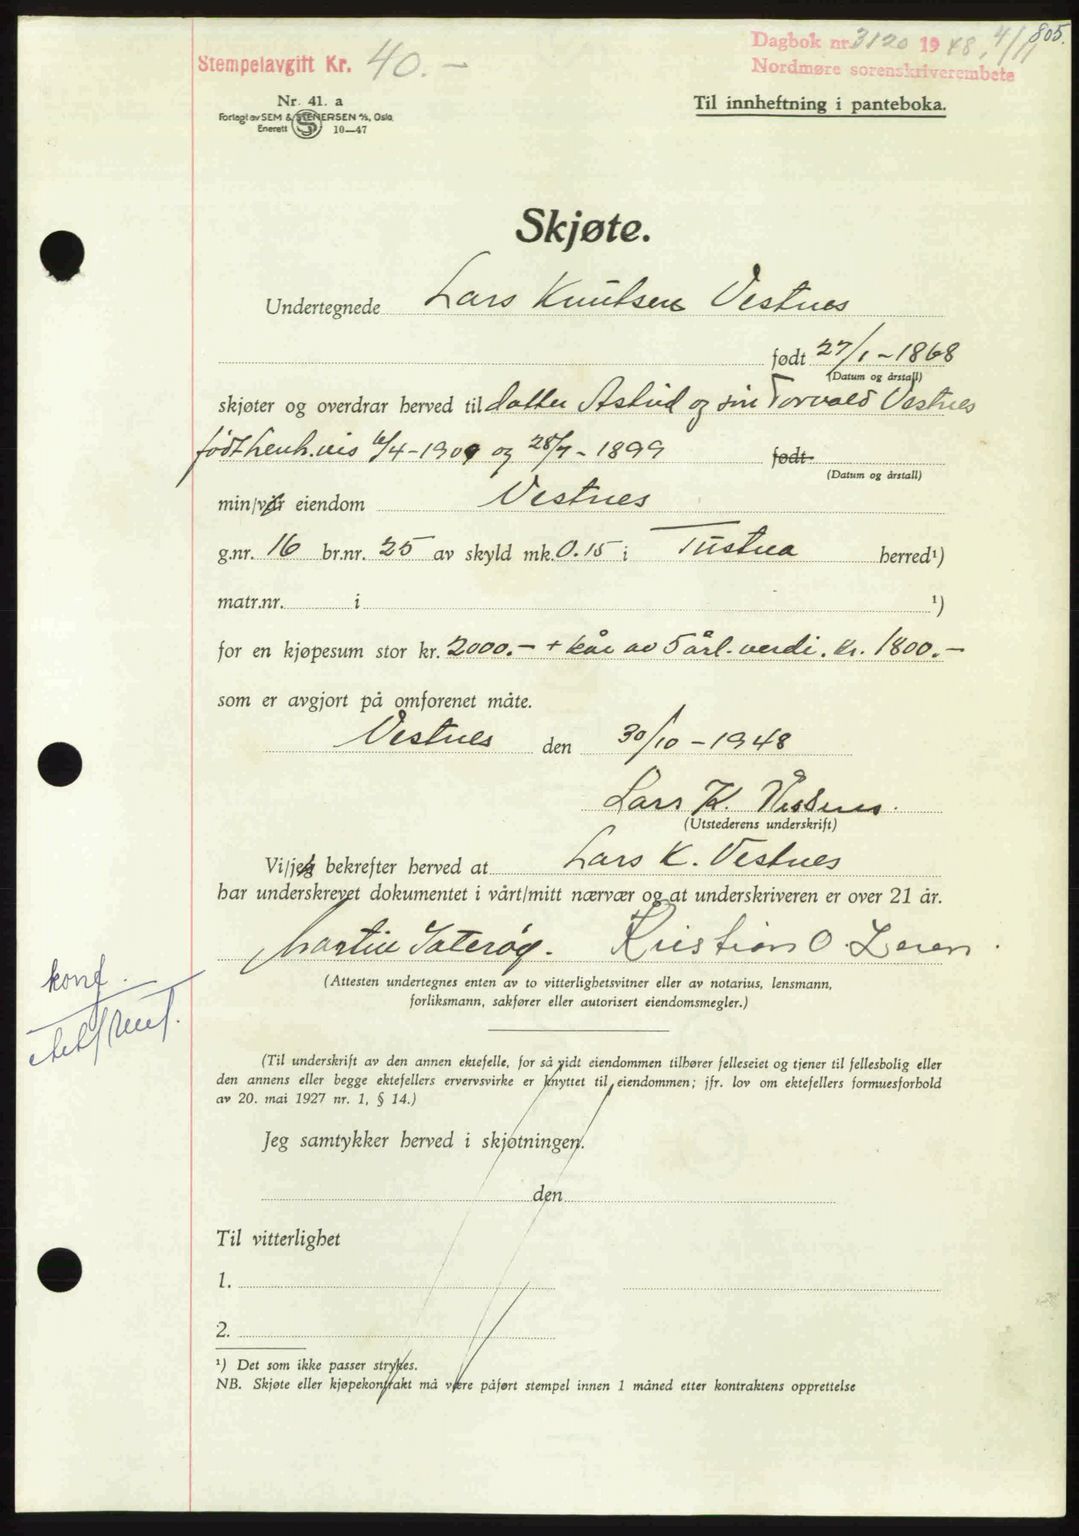 805.
Stempelavgift Kr. 40.-
Dagbok nr. 3120 1948, 4/11
Nordmøre sorenskriverembete
Nr. 41. a
Forlagt av SEM & STENERSEN A/S, Oslo
Enerett 10—47
Til innheftning i panteboka.
Skjøte.
Undertegnede Lars Knutsen Vestnes
født 27/1-1868
(Datum og årstall)
skjøter og overdrar herved til datter Astrid og sin Torvald Vestnes
født henh.vis 6/4-1909 og 28/7-1899 født
(Datum og årstall)
min/vår eiendom Vestnes
g.nr. 16 br.nr. 25 av skyld mk. 0.15 i Tustna herred¹)
matr.nr. i ¹)
for en kjøpesum stor kr. 2000.- + kår av 5 årl. verdi. kr. 1800.-
som er avgjort på omforenet måte.
Vestnes den 30/10-1948
Lars K. Vestnes.
(Utstederens underskrift)
Vi/jeg bekrefter herved at Lars K. Vestnes
har underskrevet dokumentet i vårt/mitt nærvær og at underskriveren er over 21 år.
Martin Kristian O.
(Attesten undertegnes enten av to vitterlighetsvitner eller av notarius, lensmann,
forliksmann, sakfører eller autorisert eiendomsmegler.)
konf.
(Til underskrift av den annen ektefelle, for så vidt eiendommen tilhører felleseiet og tjener til fellesbolig eller
den annens eller begge ektefellers ervervsvirke er knyttet til eiendommen; jfr. lov om ektefellers formuesforhold
av 20. mai 1927 nr. 1, § 14.)
Jeg samtykker herved i skjøtningen.
den
Til vitterlighet
1.
2.
¹) Det som ikke passer strykes.
NB. Skjøte eller kjøpekontrakt må være påført stempel innen 1 måned etter kontraktens opprettelse